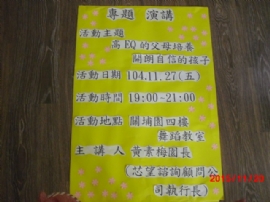 專題 演講
活動主題
高EQ的父母培養
開朗自信的孩子
活動日期 104.11.27(五)
活動時間 19:00-21:00
活動地點 關埔園四樓
舞蹈教室
主講人 黃素梅園長
(芯望諮詢顧問公
司執行長)